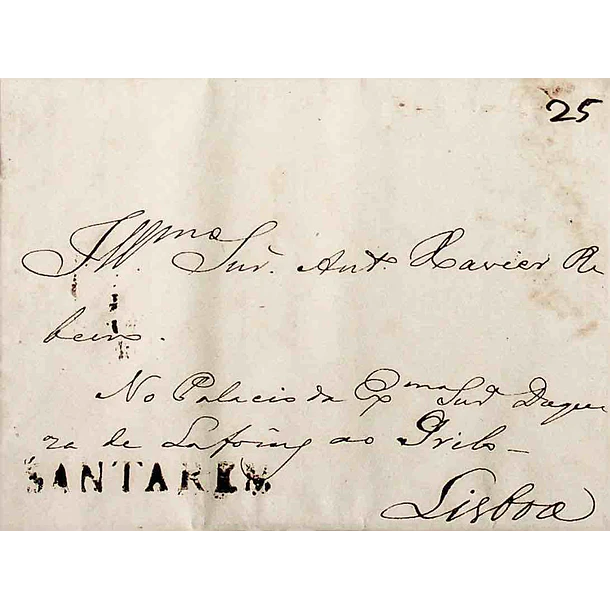 25
Illmo Snr. Ant. Xavier Ri
beiro.
No Palacio da Exma Snra Duque
za de Lafoins ao Grilo
SANTAREM
Lisboa